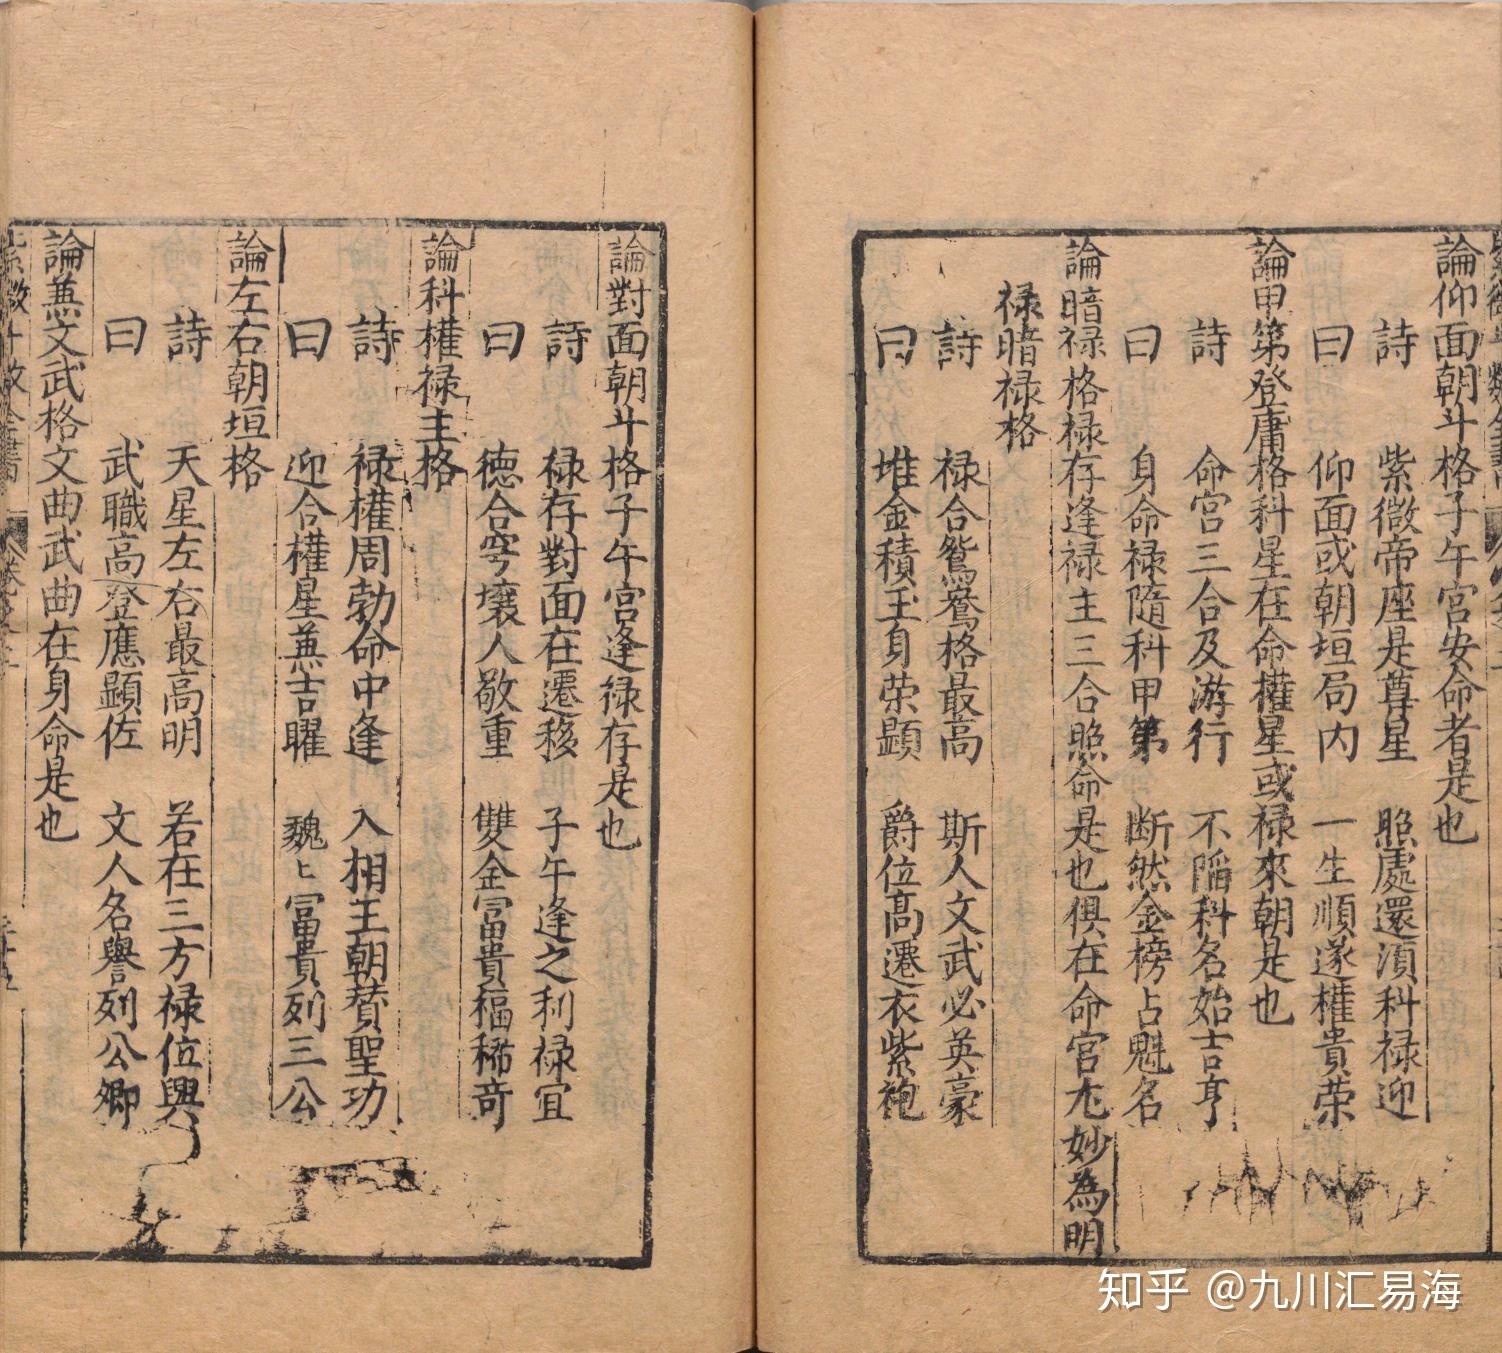 論仰面朝斗格子午宮安命者是也
詩曰
紫微帝座是尊星　照處還湏科禄迎
仰面或朝垣局内　一生順遂權貴荣
論甲第登庸格科星在命權星或禄來朝是也
詩曰
命宫三合及游行　不陷科名始吉亨
身命禄隨科甲第　断然金榜占魁名
論暗禄格禄存逢禄主三合照命是也俱在命宫尤妙為明
禄暗禄格
詩曰
禄合鴛鴦格最高　斯人文武必英豪
堆金積玉身荣顕　爵位高遷衣紫袍
論對面朝斗格子午宮逢禄存是也
詩曰
禄存對面在遷移　子午逢之利禄宜
德合穹壤人敬重　雙金富貴福稀奇
論科權禄主格
詩曰
禄權周勃命中逢　入相王朝賛聖功
迎合權星兼吉曜　巍〻冨貴列三公
論左右朝垣格
詩曰
天星左右最高明　若在三方禄位興
武職高登應顕佐　文人名譽列公卿
論兼文武格文曲武曲在身命是也
知乎 @九川汇易海